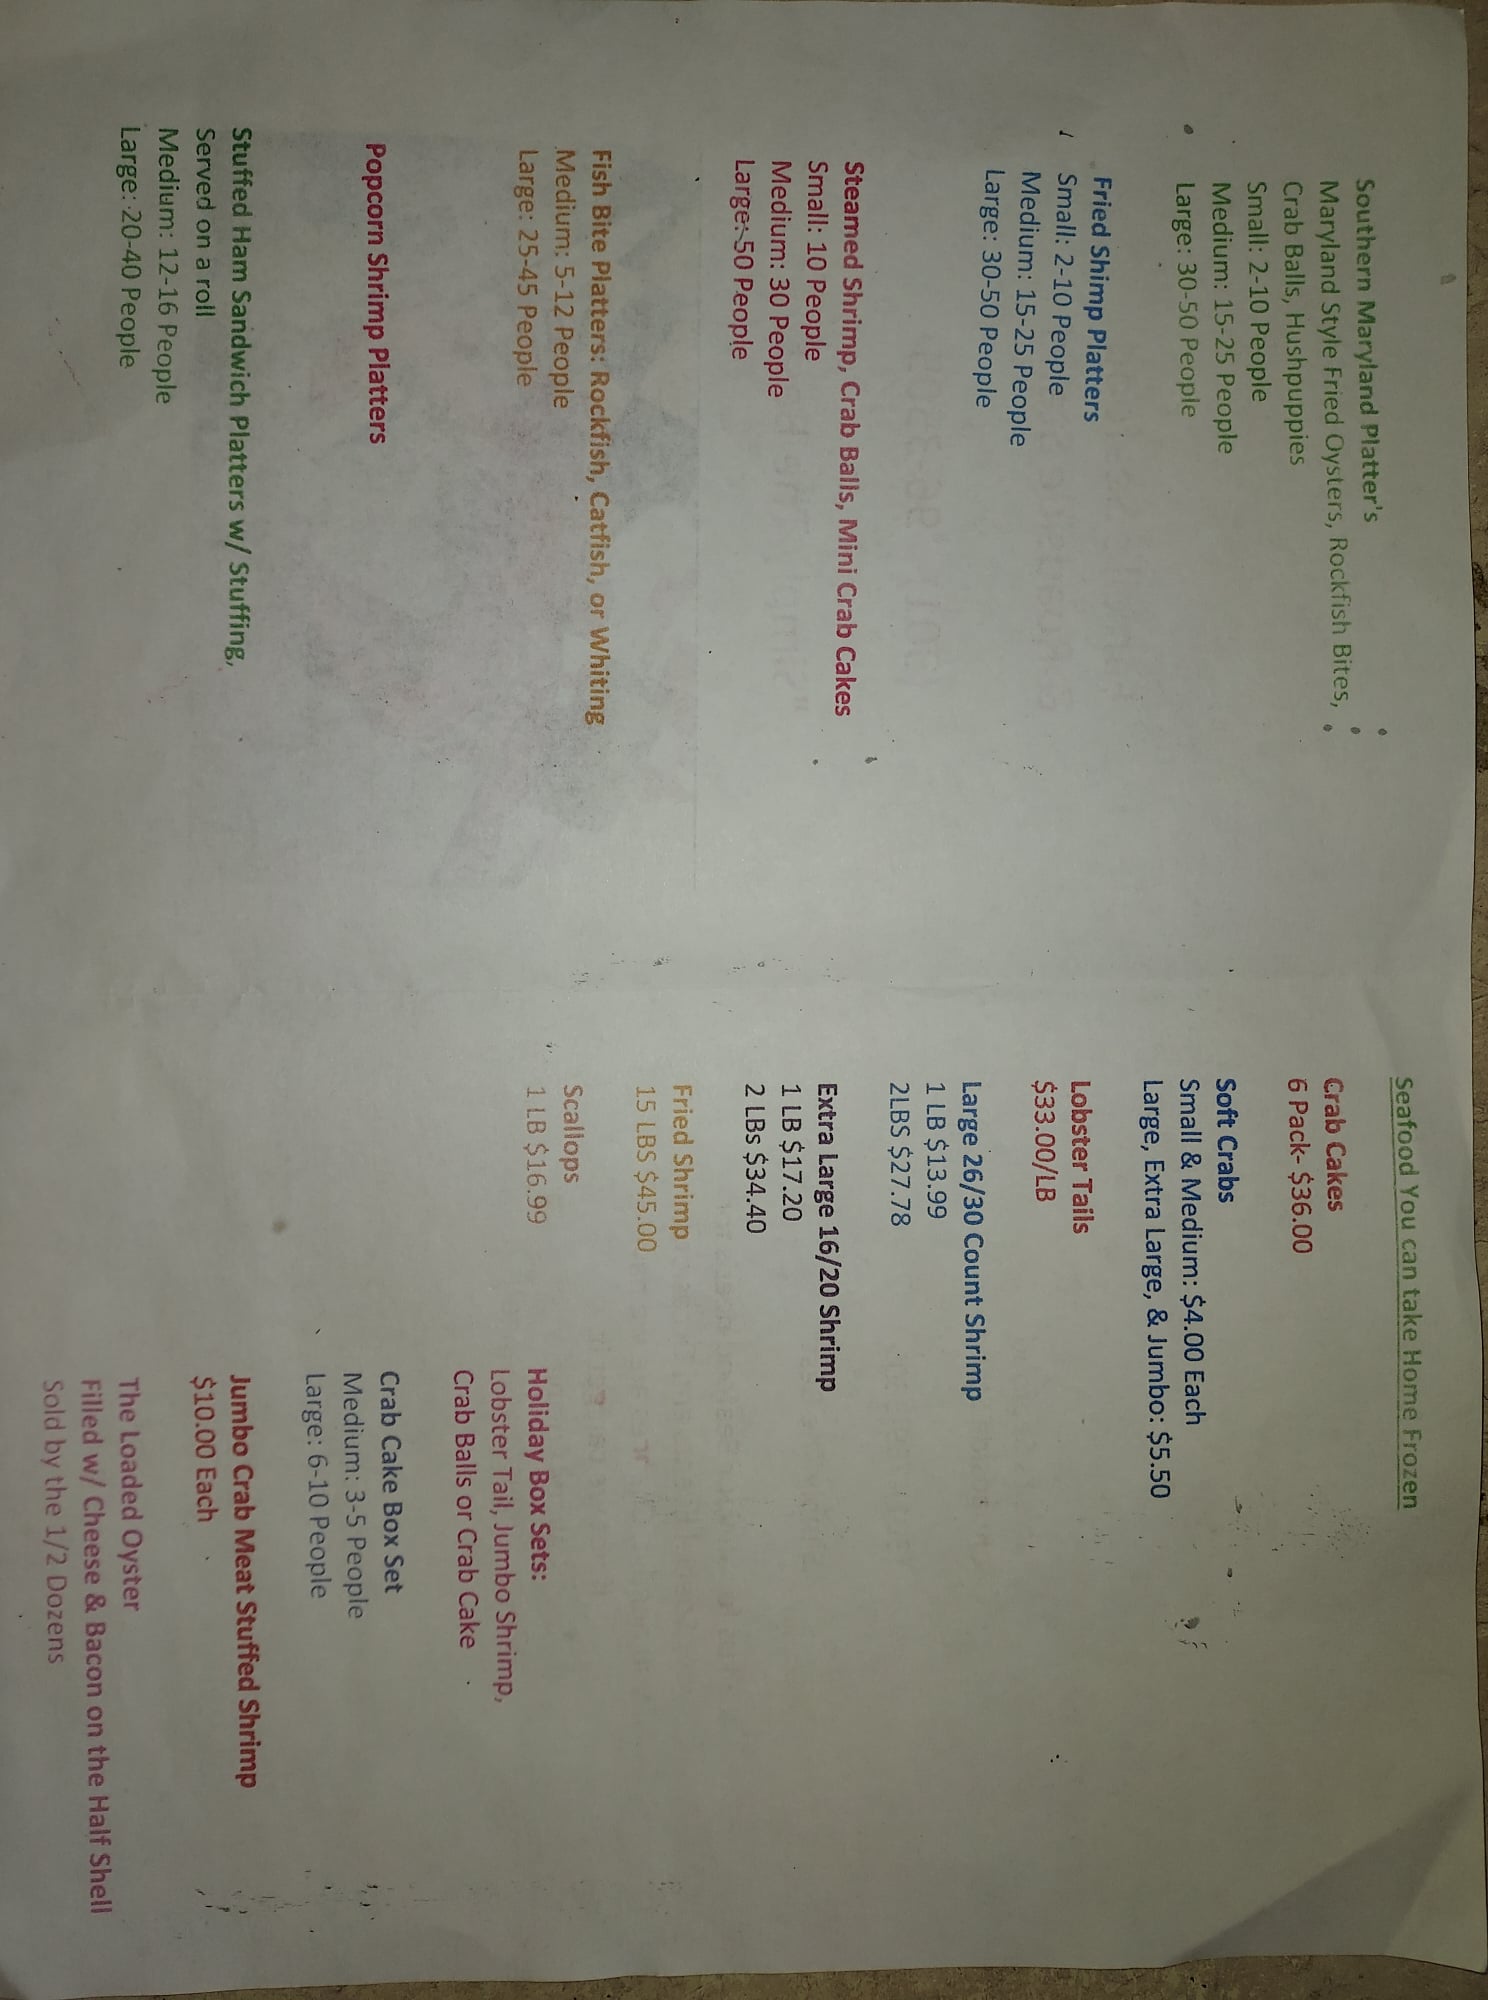 Southern Maryland Platter's
Maryland Style Fried Oysters, Rockfish Bites,
Crab Balls, Hushpuppies
Small: 2-10 People
Medium: 15-25 People
Large: 30-50 People
Fried Shimp Platters
Small: 2-10 People
Medium: 15-25 People
Large: 30-50 People
Steamed Shrimp, Crab Balls, Mini Crab Cakes
Small: 10 People
Medium: 30 People
Large: 50 People
Fish Bite Platters: Rockfish, Catfish, or Whiting
Medium: 5-12 People
Large: 25-45 People
Popcorn Shrimp Platters
Stuffed Ham Sandwich Platters w/ Stuffing,
Served on a roll
Medium: 12-16 People
Large: 20-40 People
Seafood You can take Home Frozen
Crab Cakes
6 Pack- $36.00
Soft Crabs
Small & Medium: $4.00 Each
Large, Extra Large, & Jumbo: $5.50
Lobster Tails
$33.00/LB
Large 26/30 Count Shrimp
1 LB $13.99
2LBS $27.78
Extra Large 16/20 Shrimp
1 LB $17.20
2 LBs $34.40
Fried Shrimp
15 LBS $45.00
Scallops
1 LB $16.99
Holiday Box Sets:
Lobster Tail, Jumbo Shrimp,
Crab Balls or Crab Cake
Crab Cake Box Set
Medium: 3-5 People
Large: 6-10 People
Jumbo Crab Meat Stuffed Shrimp
$10.00 Each
The Loaded Oyster
Filled w/ Cheese & Bacon on the Half Shell
Sold by the 1/2 Dozens